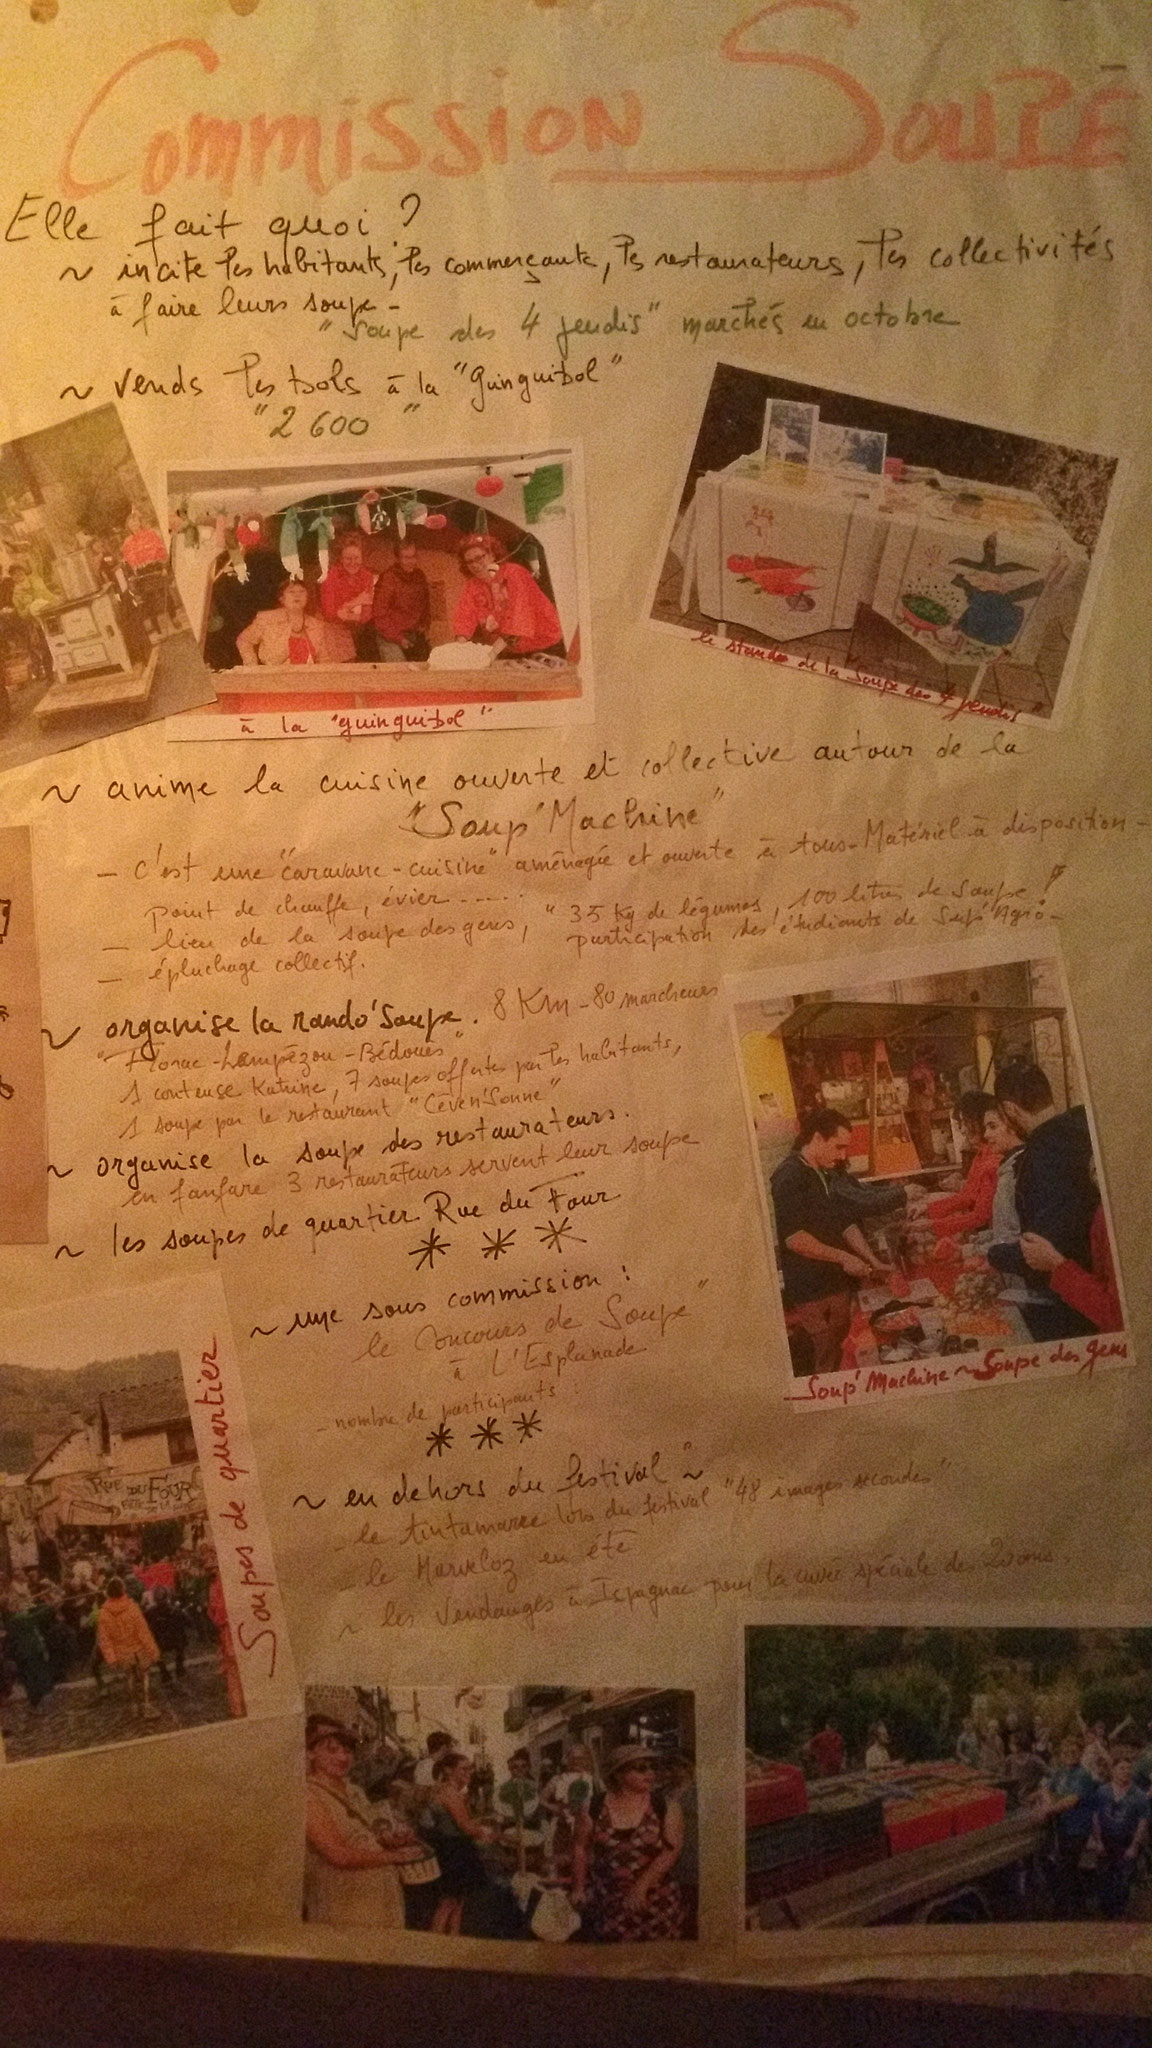 Commission Soupe
Elle fait quoi ?
~ incite les habitants, les commerçants, les restaurateurs, les collectivités
à faire leurs soupe -
"Soupe des 4 jeudis" marchés en octobre
~ vends les bols à la "guinguibol"
"2 600"
à la "guinguibol"
le stand de la "Soupe des 4 jeudis"
~ anime la cuisine ouverte et collective autour de la
"Soup'Machine"
- C'est une "caravane-cuisine" aménagée et ouverte à tous - Matériel à disposition -
point de chauffe, évier .....
- lieu de la soupe des gens, "35 kg de légumes, 100 litres de soupe !
participation des étudiants de Sup'Agro -
- épluchage collectif.
~ organise la rando'Soupe. 8 Km - 80 marcheurs
"Florac - Lempézou - Bédouès"
1 conteuse Katrine, 7 soupes offertes par les habitants,
1 soupe par le restaurant "Céven'Sonne"
~ organise la soupe des restaurateurs.
en fanfare 3 restaurateurs servent leur soupe
~ les soupes de quartier Rue du Four
* * *
~ une sous commission :
le Concours de Soupe"
à L'Esplanade
- nombre de participants :
* * *
Soup'Machine ~ Soupe des gens
Soupes de quartier
RUE DU FOUR
~ en dehors du festival ~
- le tintamarre lors du festival "48 images secondes"
- le Marveloz en été
~ les Vendanges à Ispagnac pour la cuvée spéciale des 20 ans.